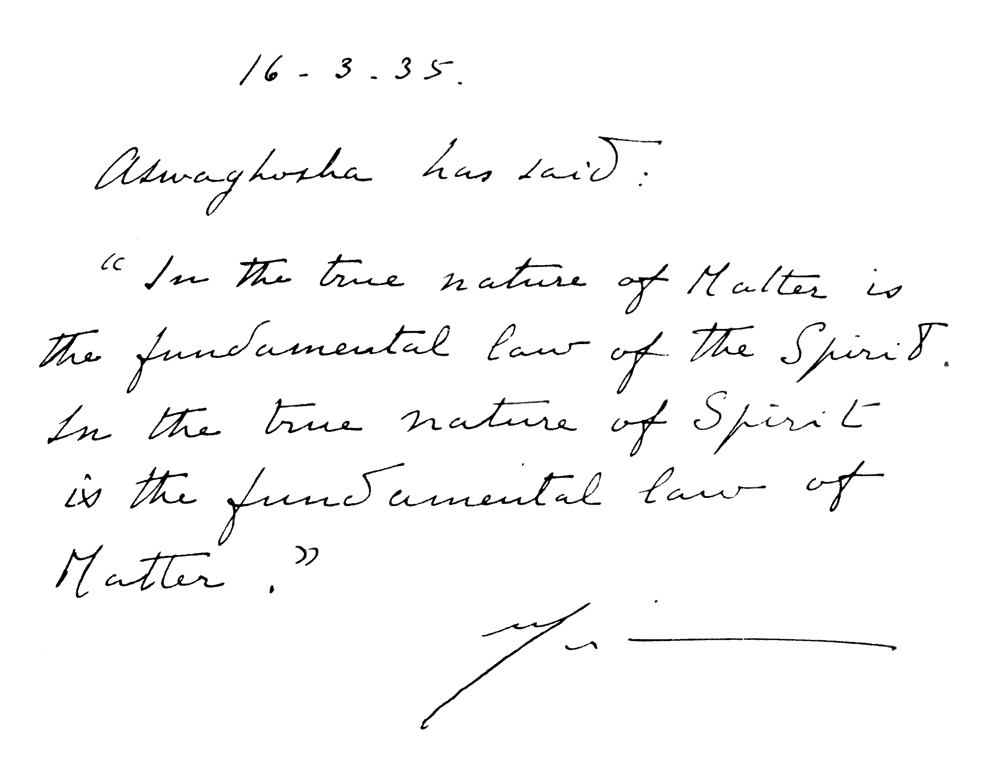 16-3-35.
Aswaghosha has said:
"In the true nature of Matter is
the fundamental law of the Spirit.
In the true nature of Spirit
is the fundamental law of
Matter."